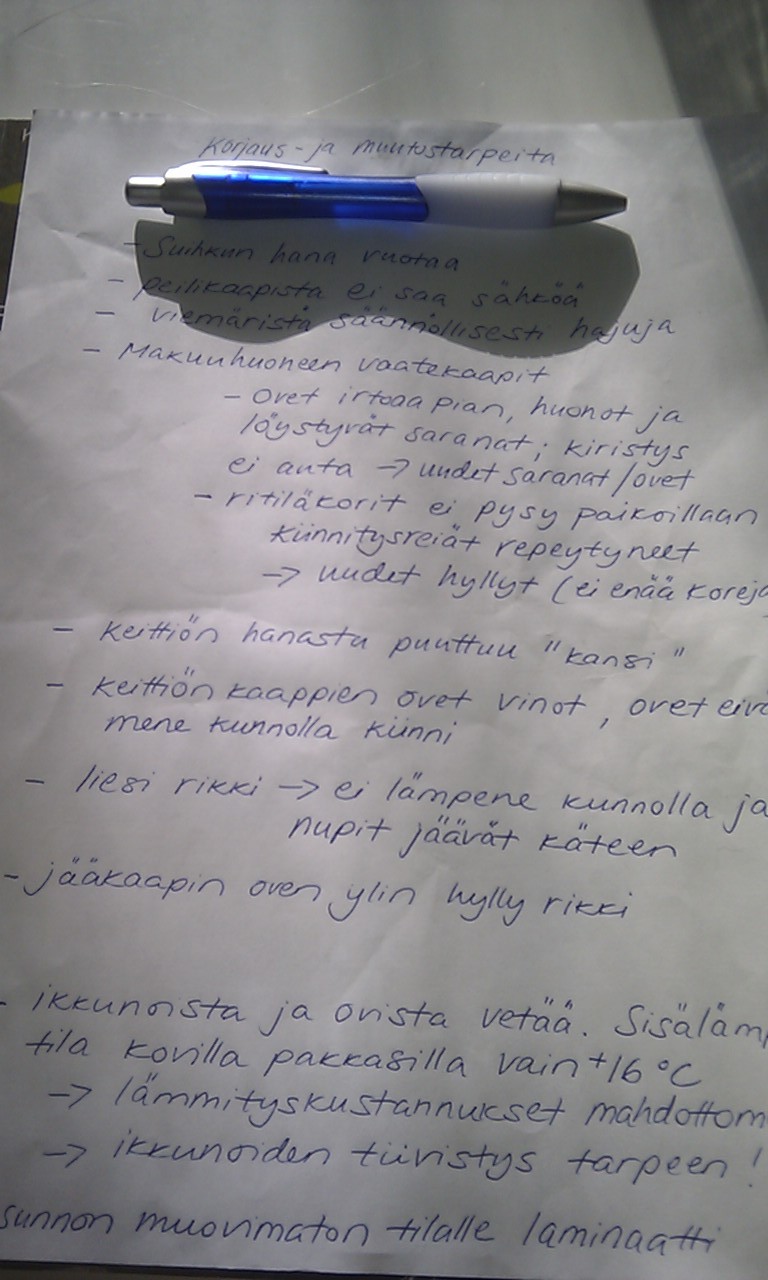 Korjaus- ja muutostarpeita
- Suihkun hana vuotaa
- peilikaapista ei saa sähköä
- viemäristä säännöllisesti hajuja
- Makuuhuoneen vaatekaapit
- ovet irtoaa pian, huonot ja
löystyvät saranat; kiristys
ei auta → uudet saranat/ovet
- ritiläkorit ei pysy paikoillaan
kiinnitysreiät repeytyneet
→ uudet hyllyt (ei enää koreja
- keittiön hanasta puuttuu "kansi"
- keittiön kaappien ovet vinot, ovet eivä
mene kunnolla kiinni
- liesi rikki → ei lämpene kunnolla ja
nupit jäävät käteen
- jääkaapin oven ylin hylly rikki
- ikkunoista ja ovista vetää. Sisälämp
tila kovilla pakkasilla vain +16 °C
→ lämmityskustannukset mahdottom
→ ikkunoiden tiivistys tarpeen!
sunnon muovimaton tilalle laminaatti